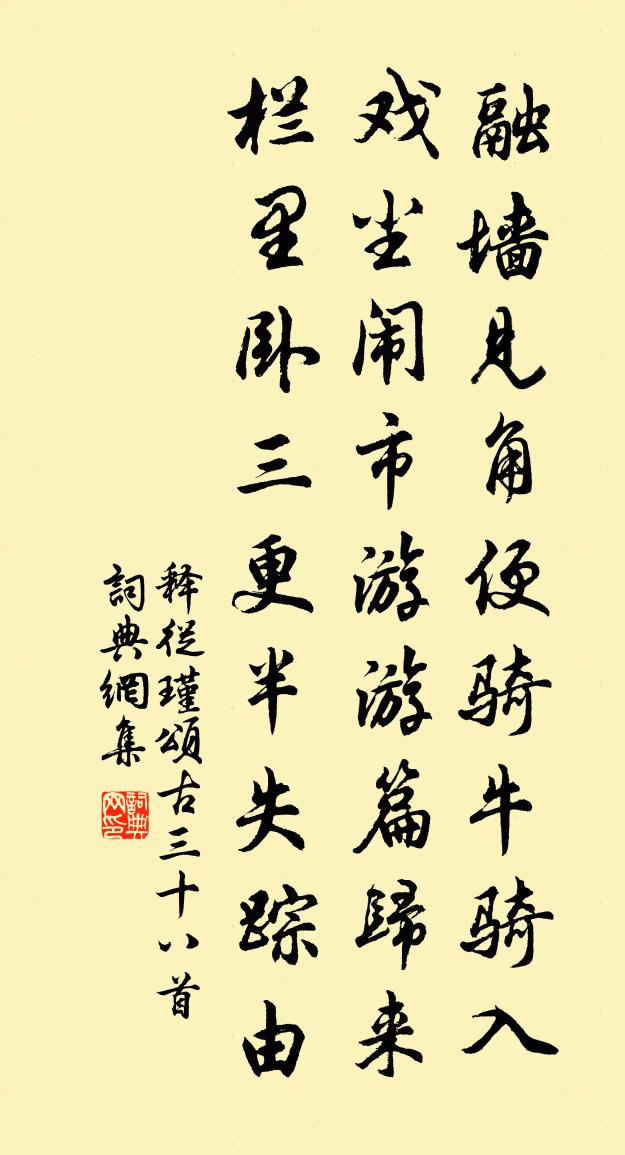 融墙见角便骑牛骑入
戏尘闹市游游篇歸来
栏里卧三更半失踪由
释從瑾頌古三十八首
詞典網集
詞典网印